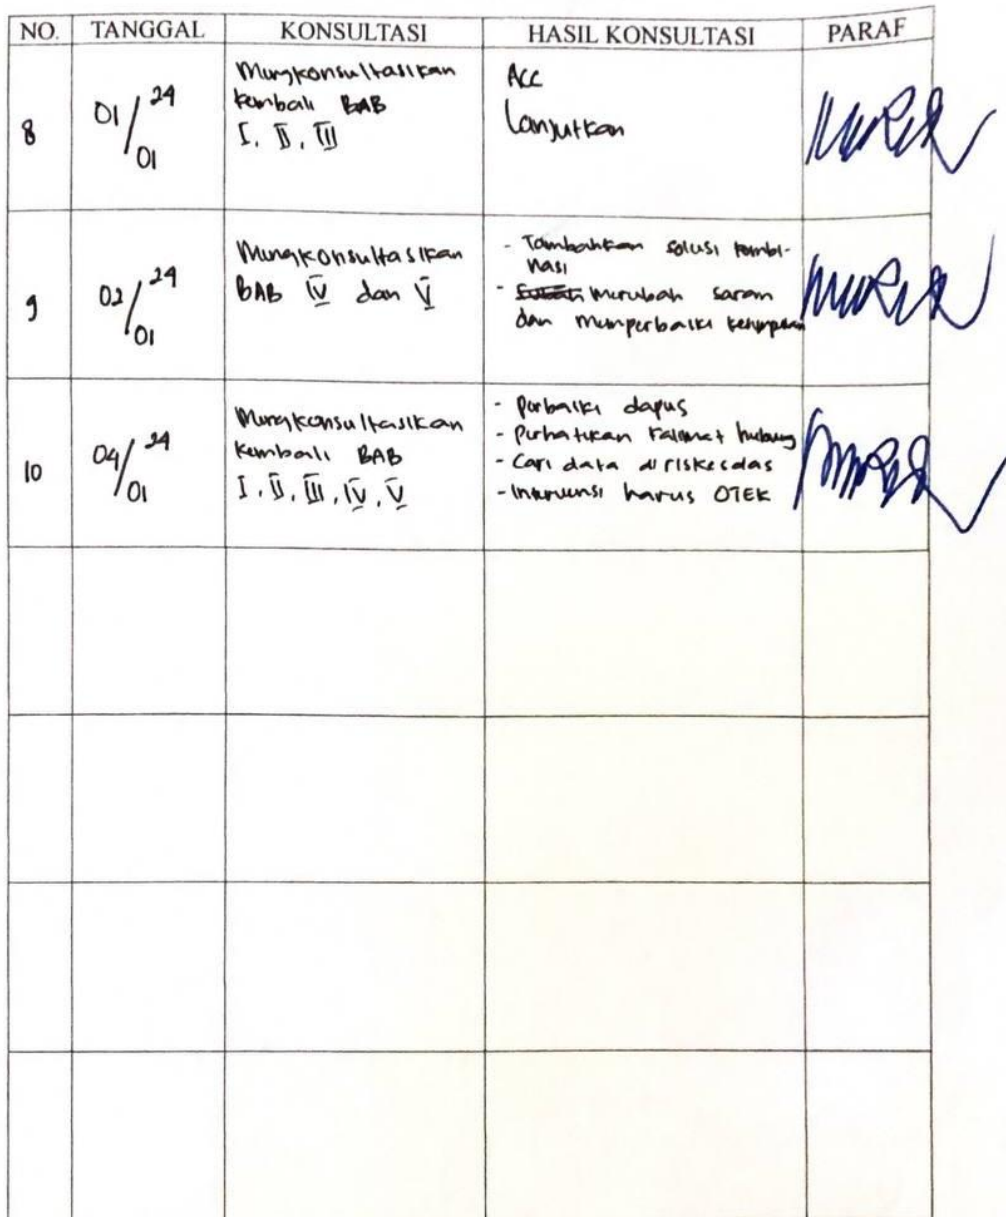 NO. TANGGAL KONSULTASI HASIL KONSULTASI PARAF
8
01/24
01
Mengkonsultasikan
kembali BAB
I, II, III
Acc
Lanjutkan
9
02/24
01
Mengkonsultasikan
BAB IV dan V
- Tambahkan solusi kombi-
nasi
- Merubah saran
dan memperbaiki
10
04/24
01
Mengkonsultasikan
kembali BAB
I, II, III, IV, V
- Perbaiki dapus
- Perhatikan kalimat hubung
- Cari data di riskesdas
- Intervensi harus OTEK